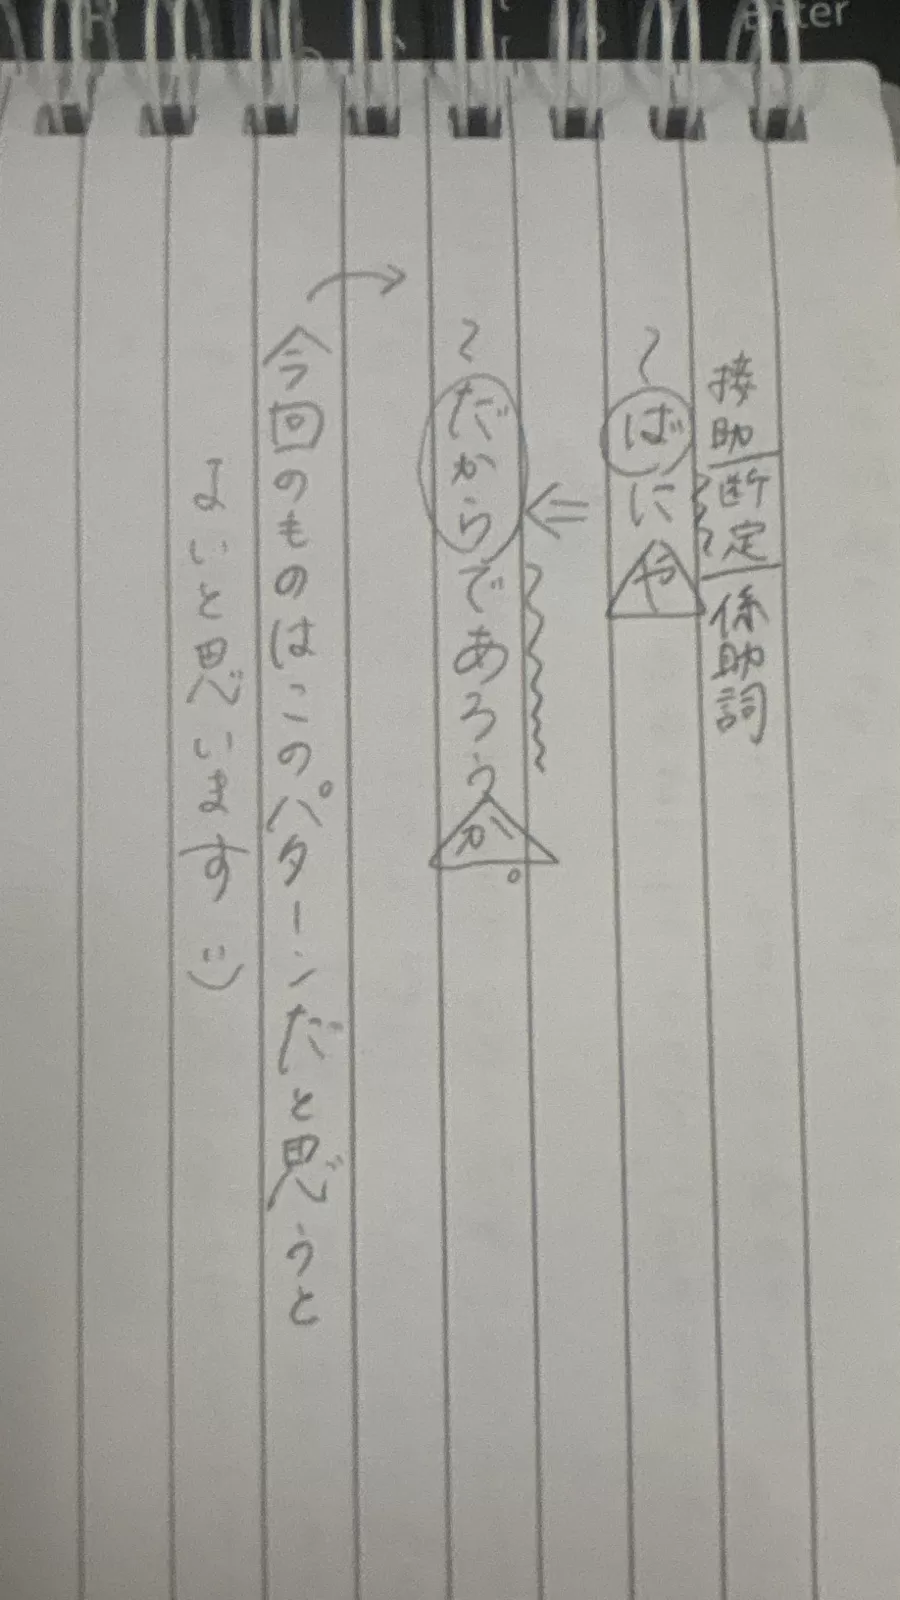 接助 断定 係助詞
〜ばにや
〜だからであろうか。
今回のものはこのパターンだと思うと
よいと思います :)
Enter